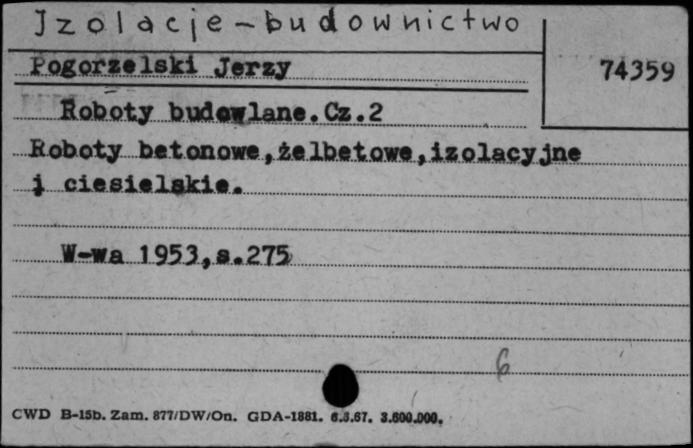 Izolacje - budownictwo
Pogorzelski Jerzy
74359
Roboty budowlane. Cz. 2
Roboty betonowe, żelbetowe, izolacyjne
i ciesielskie.
W-wa 1953, s. 275
6
CWD B-15b. Zam. 877/DW/On. GDA-1881. 6.3.67. 3.600.000.